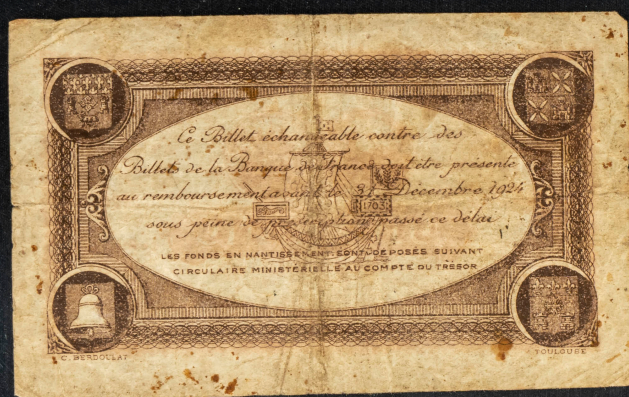 Ce Billet échangeable contre des
Billets de la Banque de France doit être présenté
au remboursement avant le 31 Décembre 1924
sous peine de passé ce délai
LES FONDS EN NANTISSEMENT SONT DEPOSES SUIVANT
CIRCULAIRE MINISTERIELLE AU COMPTE DU TRESOR
C. BERDOULAT
TOULOUSE